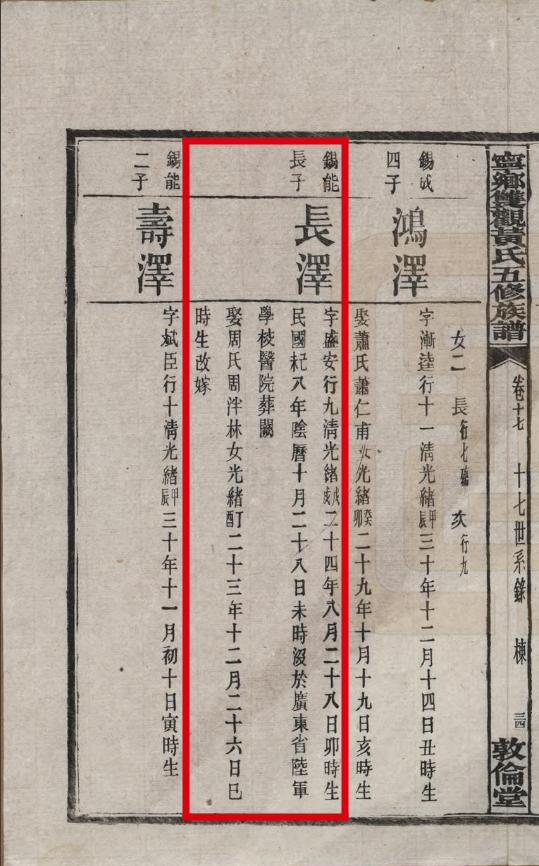 寧鄉雙觀黃氏五修族譜
卷十七
十七世系錄
棟
三四
敦倫堂
女二 長行七殤 亥行九
錫成
四子
鴻澤
字漸逵行十一清光緒甲辰三十年十二月十四日丑時生
娶蕭氏蕭仁甫女光緒癸卯二十九年十月十九日亥時生
錫能
長子
長澤
字盛安行九清光緒戊戌二十四年八月二十八日卯時生
民國杞八年陰曆十月二十八日未時沒於廣東省陸軍
學校醫院葬闕
娶周氏周泮林女光緒丁酉二十三年十二月二十六日巳
時生改嫁
錫能
二子
壽澤
字斌臣行十清光緒甲辰三十年十一月初十日寅時生